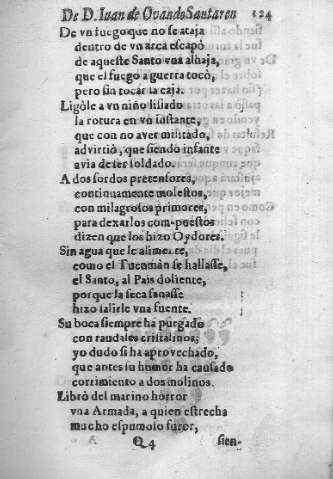 De D. Iuan de Ouando Santaren 124
De vn fuego que no se ataja
dentro de vn arca escapò
de aqueste Santo vna alhaja,
que el fuego a guerra tocò,
pero sin tocar la caja.
Ligòle a vn niño lisiado
la rotura en vn instante,
que con no aver militado,
advirtiò, que siendo infante
avia de ser soldado.
A dos sordos pretensores,
continuamente molestos,
con milagrosos primores,
para dexarlos compuestos
dizen que los hizo Oydores.
Sin agua que le alimente,
como el Tucumàn se hallasse,
el Santo, al Pais doliente,
porque la seca sanasse
hizo salirle vna fuente.
Su boca siempre ha purgado
con raudales cristalinos,
yo dudo si ha aprovechado,
que antes su humor ha causado
corrimiento a dos molinos.
Librò del marino horror
vna Armada, a quien estrecha
mucho espumoso furor,
Q4 sien-